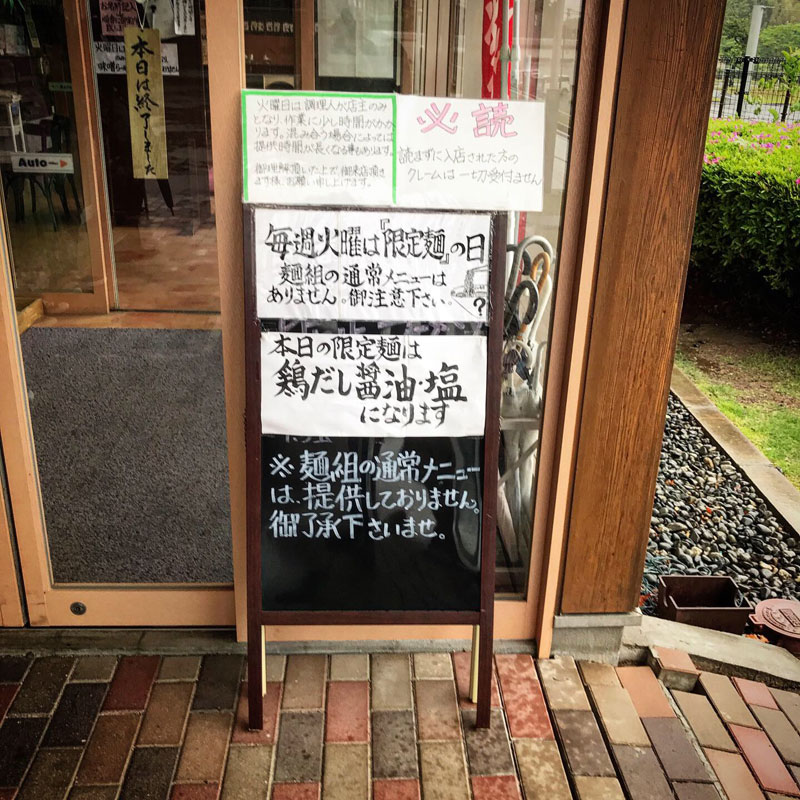 本日は終了しました
Auto
火曜日は調理人が店主のみ
となり、作業に少し時間がかか
ります。混み合う場合によっては
提供時間が長くなる事もあります。
御理解頂いた上で御来店頂き
ます様、お願い申し上げます。
必読
読まずに入店された方の
クレームは一切受付ません
毎週火曜は『限定麺』の日
麺組の通常メニューは
ありません。御注意下さい。
?
本日の限定麺は
鶏だし醤油・塩
になります
※麺組の通常メニュー
は、提供しておりません。
御了承下さいませ。